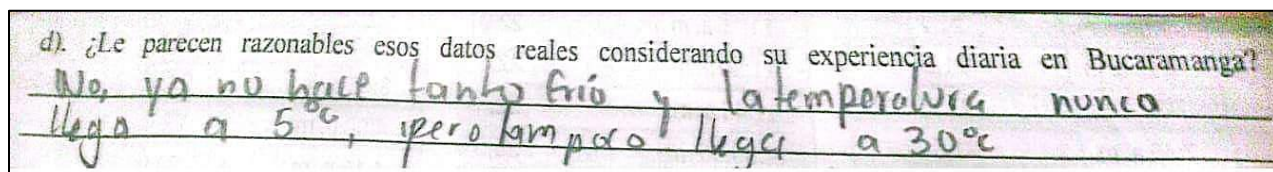 d). ¿Le parecen razonables esos datos reales considerando su experiencia diaria en Bucaramanga?
No, ya no hace tanto frío y la temperatura nunca
llega a 5°C, pero tampoco llega a 30°C